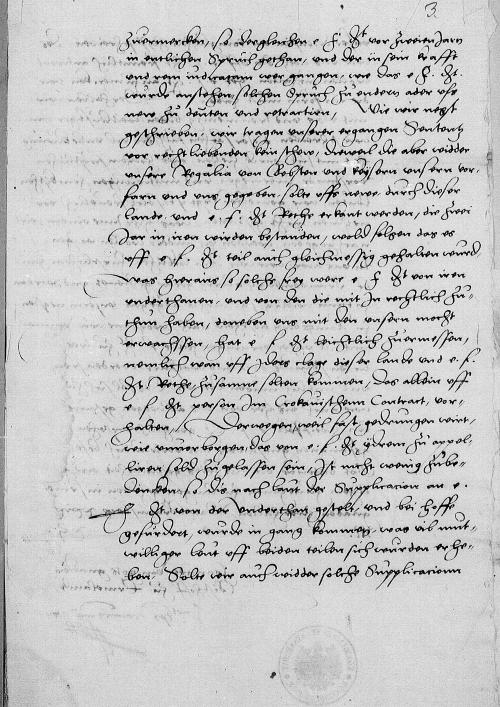 3
zuvermercken, so dergleichen e f. dt vor zweien Jarn
in entlichen spruch gethan, und der in sein krafft
und rem iudicatam were gangen, wie das e. f. dt.
wurde anstehen, solchen spruch zu endern ader uffs
newe zu deuten und retractirn, Wie wir nehst
geschrieben, wir tragen unserer ergangen Sententz
vor rechtliebenden kein schew, dieweil die aber widder
unsere Regalia von Bebsten und keysern unsern vor-
farn und uns gegeben, solte uffs newe durch dieser
lande und e. f. dt Rethe erkant werden, die zwei
Jar in iren wirden bestanden, wold solchen das es
uff e. f. dt teil auch gleichmessig gehalten wurd
was hieraus so solchs sreg were e f dt von iren
underthanen, und von den die mit Jn rechtlich zu-
thun haben, doneben uns mit den unsern mocht
erwachssen, hat e f dt leichtlich zuermessen,
nemlich wan uff Jders clage dieser lande und e. f.
dt Rethe zusamne solten kommen, das allein uff
e f dt person Im Crokauischenn Contract, vor-
halten, Derwegen, weil fast gedrungen wirt,
wie unverborgen, das von e. f. dt gdrem zu appel-
liren sold zugelassen sein, Ist nicht wenig zube-
dencken, so die nach laut der Supplicacion an e.
f. dt. von der underthan gestelt, und bei hoffe
gefurdert, wurde in gang kommen, was vil mut-
williger leut uff beiden teilen sich wurden erhe-
ben. Solte wir auch widder solche Supplicacionn